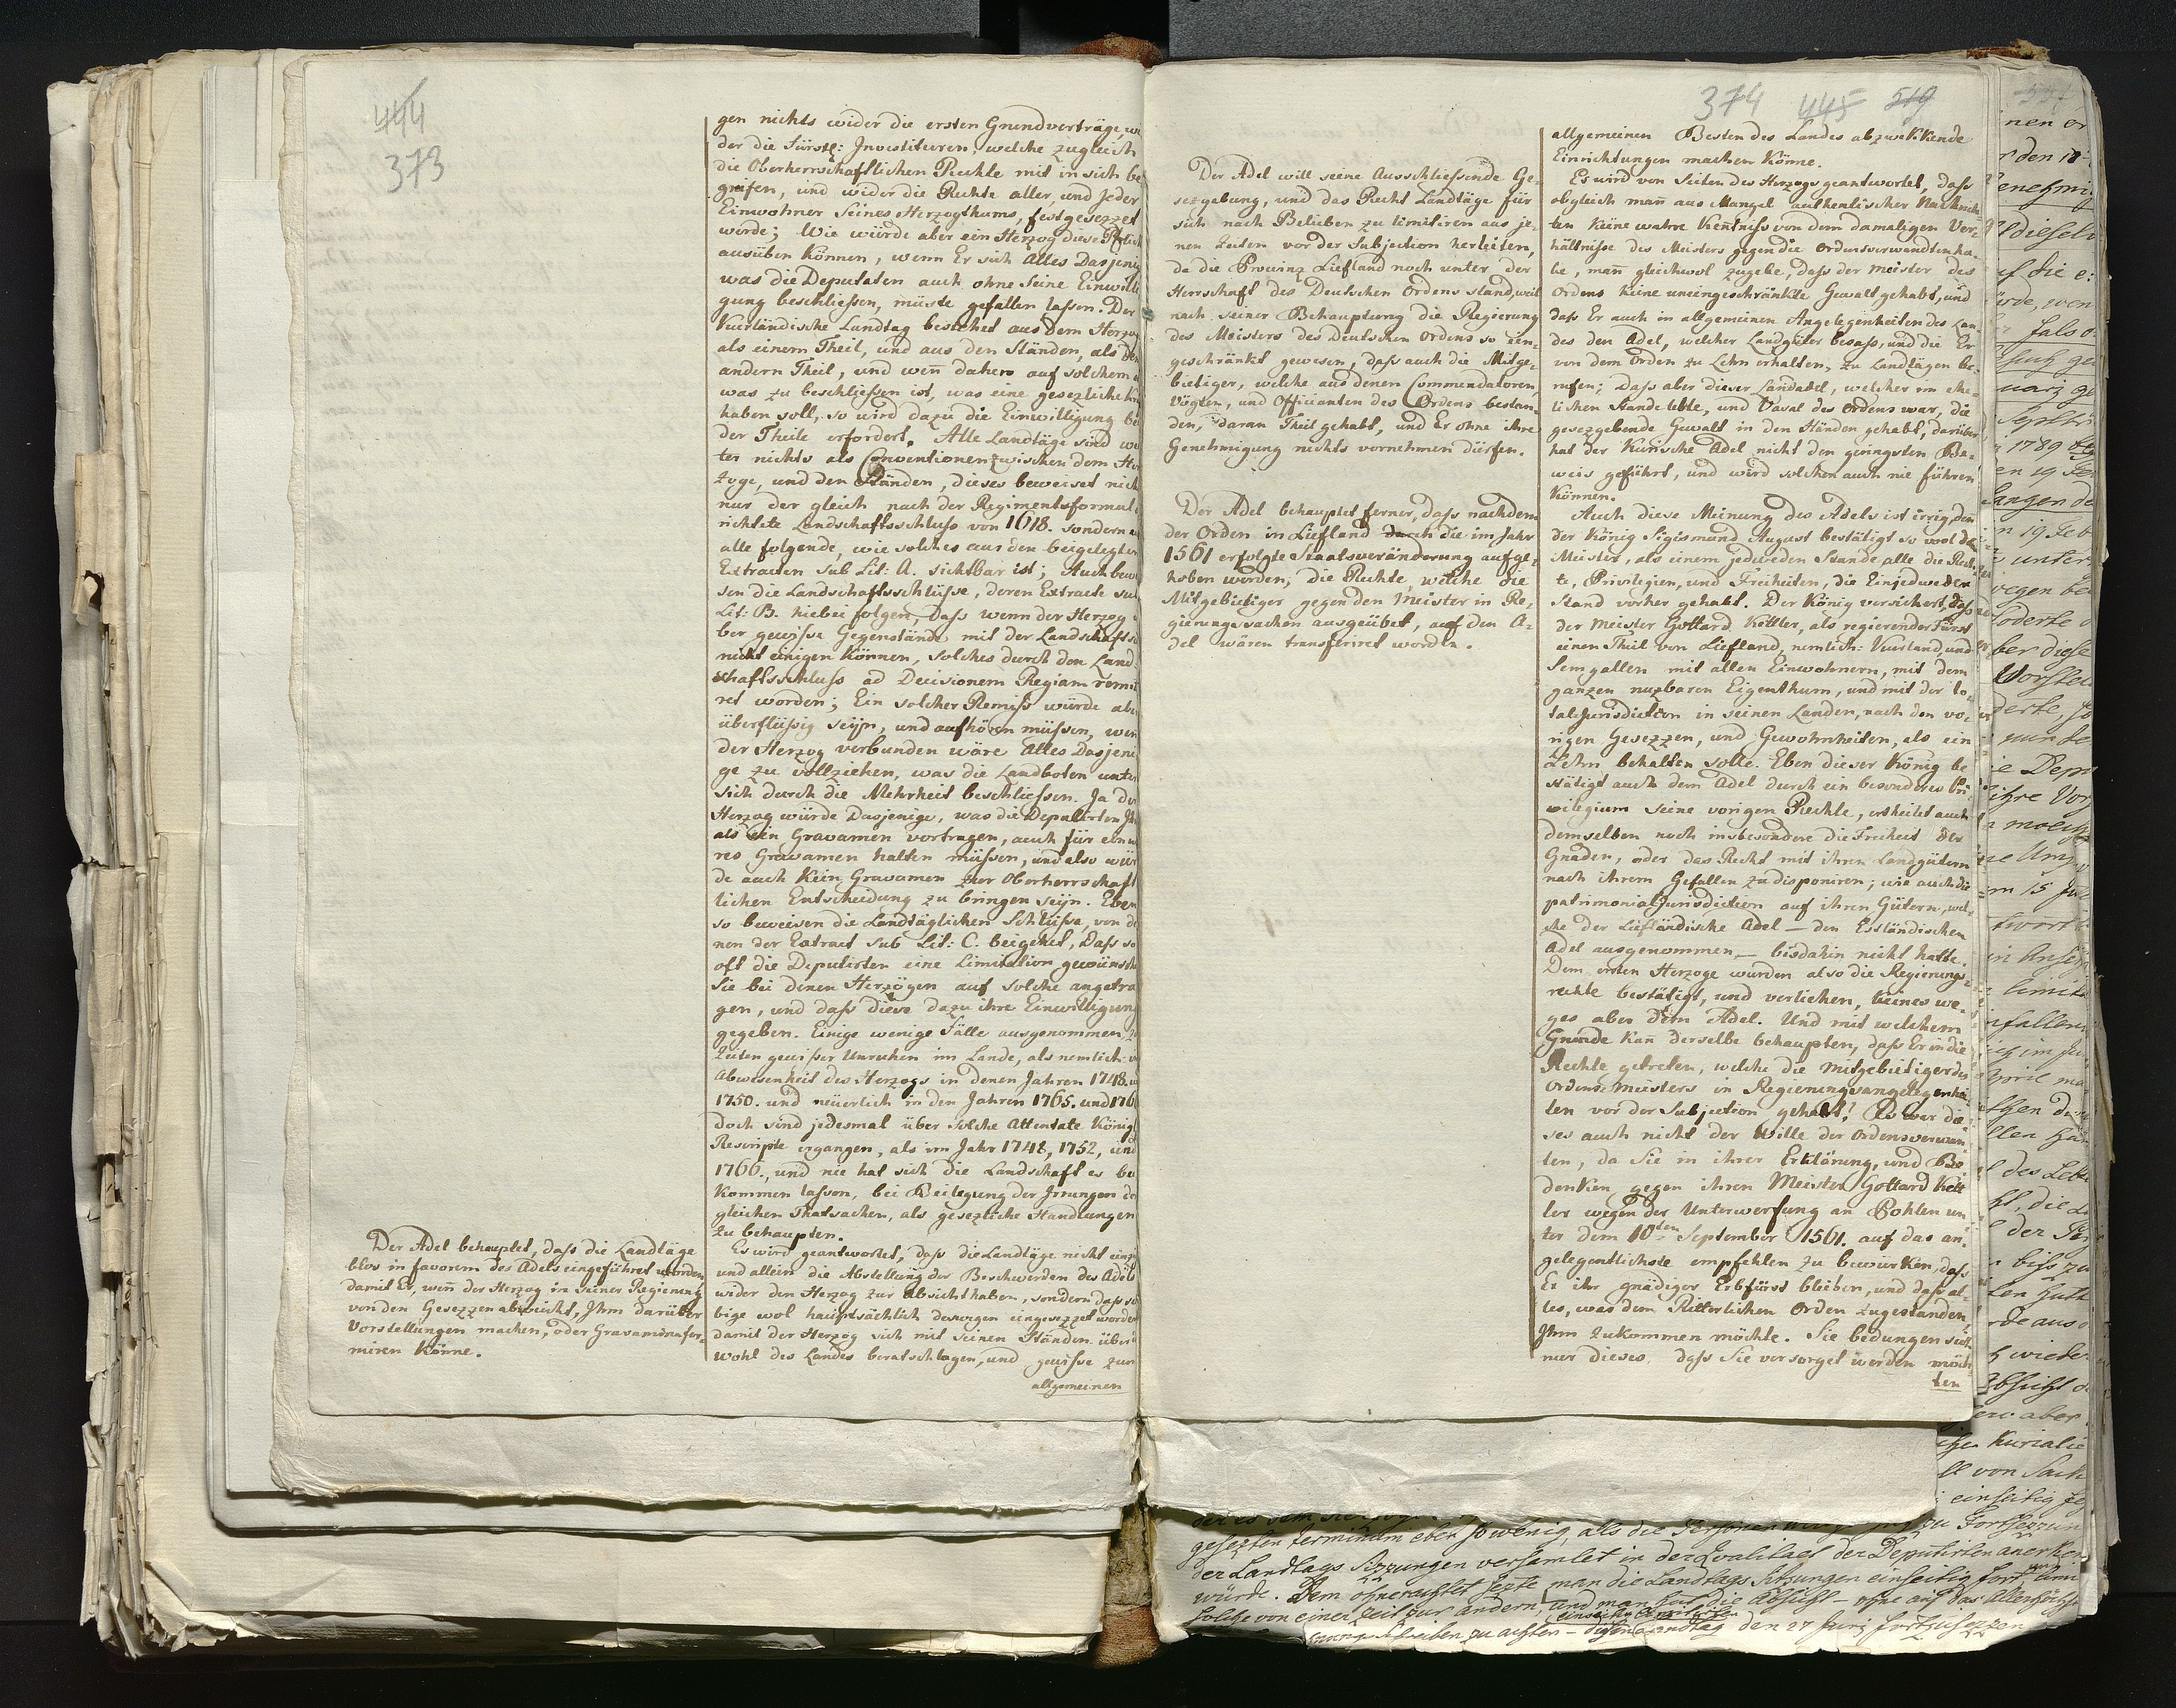 444
373
gen nichts wider die ersten Grundverträge, wi
der die Fürstl: Investituren, welche zugleich
die Oberherrschaftlichen Rechte mit in sich be
greifen, und wider die Rechte aller, und Jeder
Einwohner Seines Herzogthums, festgesezzet
würde; Wie würde aber ein Herzog diese Pflich
ausüben können, wenn Er sich alles Dasjenig
was die Deputaten auch ohne Seine Einwilli
gung beschliessen, müste gefallen lassen. Der
Kurländische Landtag bestehet aus dem Herzog
als einem Theil, und aus den Ständen, als dem
andern Theil, und wen̄ dahero auf solchem
was zu beschliessen ist, was eine gesezliche
haben soll, so wird dazu die Einwilligung bei
der Theile erfordert. Alle Landtäge sind wei
ter nichts als Conventionen zwischen dem Her
zoge, und den Ständen, dieses beweiset nich
nur der gleich nach der Regimentsformul
richtete Landschaftsschluss von 1618. sondern
alle folgende, wie solches aus den beigelegten
Extracten sub Lit: A. sichtbar ist; Auch bewei
sen die Landschaftsschlüsse, deren Extracte sub
Lit: B. hiebei folgen, Dass wenn der Herzog ü
ber gewisse Gegenstände mit der Landschaft
nicht einigen können, solches durch den Land
schaftsschluss ad Decisionem Regiam remit
ret worden; Ein solcher Remiss würde aber
überflüssig seyn, und aufhören müssen, wen
der Herzog verbunden wäre Alles Dasjeni
ge zu vollziehen, was die Landboten unter
sich durch die Mehrheit beschliessen. Ja der
Herzog würde Dasjenige, was die Deputirten Ihm
als ein Gravamen vortragen, auch für ein wa
res Gravamen halten müssen, und also wür
de auch kein Gravamen zur Oberherrschaft
lichen Entscheidung zu bringen seyn. Eben
so beweisen die Landtäglichen Schlüsse, von de
nen der Extract sub Lit: C. beigehet, Dass so
oft die Deputirten eine Limitation gewünscht
Sie bei denen Herzögen auf solche angetra
gen, und dass diese dazu ihre Einwilligung
gegeben. Einige wenige Fälle ausgenommen, zu
Zeiten gewisser Unruhen im Lande, als nemlich: in
Abwesenheit des Herzogs in denen Jahren 1748. u
1750. und neüerlich in den Jahren 1765. und 176
doch sind jedesmal über solche Attentate Königl
Rescripte ergangen, als im Jahr 1748, 1752, und
1766., und nie hat sich die Landschaft es bei
kommen lassen, bei Beilegung der Irrungen der
gleichen Thatsachen, als gesezliche Handlungen
zu behaupten.
Der Adel behauptet, dass die Landtäge
blos in favorem des Adels eingeführet worden
damit Er, wen̄ der Herzog in seiner Regierung
von den Gesezzen abweicht, Ihm darüber
Vorstellungen machen, oder Gravamina for-
miren könne.
Es wird geantwortet, dass die Landtäge nicht einzig
und allein die Abstellung der Beschwerden des Adels
wider den Herzog zur Absicht haben, sondern dass sel
bige wol hauptsächlich deswegen eingesezzet worden
damit der Herzog sich mit seinen Ständen über
wohl des Landes berathschlagen, und gewisse zum
allgemeinen
374 445 519
Der Adel will seine Ausschliessende Ge-
sezgebung, und das Recht Landtäge für
sich nach Belieben zu limitiren aus je-
nen Zeiten vor der Subjection herleiten,
da die Provinz Liefland noch unter der
Herrschaft des Deutschen Ordens stand, weil
nach seiner Behauptung die Regierung
des Meisters des Deutschen Ordens so ein-
geschränkt gewesen, dass auch die Mitge-
bietiger, welche aus denen Commendatoren,
Vögten, und Officianten des Ordens bestan-
den, daran Theil gehabt, und Er ohne ihre
Genehmigung nichts vornehmen dürfen.
Der Adel behauptet ferner, dass nachdem
der Orden in Liefland durch die im Jahr
1561 erfolgte Staatsveränderung aufge-
hoben worden, die Rechte, welche die
Mitgebietiger gegen den Meister in Re-
gierungssachen ausgeübet, auf den A-
del wären transferiret worden.
allgemeinen Besten des Landes abzwekkende
Einrichtungen machen könne.
Es wird von Seiten des Herzogs geantwortet, dass
obgleich man̄ aus Mangel authentischer Nachrich-
ten keine wahre Ken̄tniss von dem damaligen Ver-
hältnisse des Meisters gegen die Ordensverwandten ha-
be, man̄ gleichwol zugebe, dass der Meister des
Ordens keine uneingeschränkte Gewalt gehabt, und
dass Er auch in allgemeinen Angelegenheiten des Lan-
des den Adel, welcher Landgüter besass, und die Er
von dem Orden zu Lehn erhalten, zu Landtägen be-
rufen; Dass aber dieser Landadel, welcher im ehe-
lichen Stande lebte, und Vasal des Ordens war, die
gesezgebende Gewalt in den Händen gehabt, darüber
hat der Kurische Adel nicht den geringsten Be-
weis geführt, und wird solchen auch nie führen
können.
Auch diese Meinung des Adels ist irrig, den
der König Sigismund August bestätigt so wol dem
Meister, als einem jedweden Stande alle die Rech-
te, Privilegien, und Freiheiten, die Einjedweder
Stand vorher gehabt. Der König versichert, dass
der Meister Gottard Kettler, als regierender Fürst
einen Theil von Liefland, nemlich: Kurland, und
Semgallen mit allen Einwohnern, mit dem
ganzen nuzbaren Eigenthum, und mit der to-
talJurisdiction in seinen Landen, nach den vo-
rigen Gesezzen, und Gewohnheiten, als ein
Lehn behalten solte. Eben dieser König be
stätigt auch dem Adel durch ein besonderes Pri-
vilegium seine vorigen Rechte, ertheilet auch
demselben noch insbesondere die Freiheit der
Gnaden, oder das Recht mit ihren Landgütern
nach ihrem Gefallen zu disponiren; wie auch die
patrimonialJurisdiction auf ihren Gütern, wel-
che der Liefländische Adel — den Estländischen
Adel ausgenommen, — bisdahin nicht hatte.
Dem ersten Herzoge wurden also die Regierungs-
rechte bestätigt, und verliehen, keines we-
ges aber dem Adel. Und mit welchem
Grunde kan̄ derselbe behaupten, dass Er in die
Rechte getreten, welche die Mitgebietiger des
Ordens Meisters in Regierungsangelegenhei-
ten vor der Subjection gehabt! Es war die-
ses auch nicht der Wille der Ordensverwan-
ten, da Sie in ihrer Erklärung, und Be-
denken gegen ihren Meister Gottard Kett
ler wegen der Unterwerfung an Pohlen un-
ter dem 10ten September 1561. auf das an-
gelegentlichste empfehlen zu bewürken, dass
Er ihr gnädiger Erbfürst bleiben, und dass al-
les, was dem Ritterlichen Orden zugestanden,
Ihm zukommen möchte. Sie bedungen sich
nur dieses, dass Sie versorget werden möch
ten
gesezten terminum eben so wenig, als die Personen zu Fortsezzun
der Landtags Sizzungen versamlet in der Qualitaet der Deputirten anerken
würde. Dem ohnerachtet sezte man die Landtags Sitzungen einseitig fort
solche von einer Zeit zur andern, und man hat die Absicht — ohne auf das Allerhöchst
zu achten — diesen Landtag den 27 Junij fortzusezzen